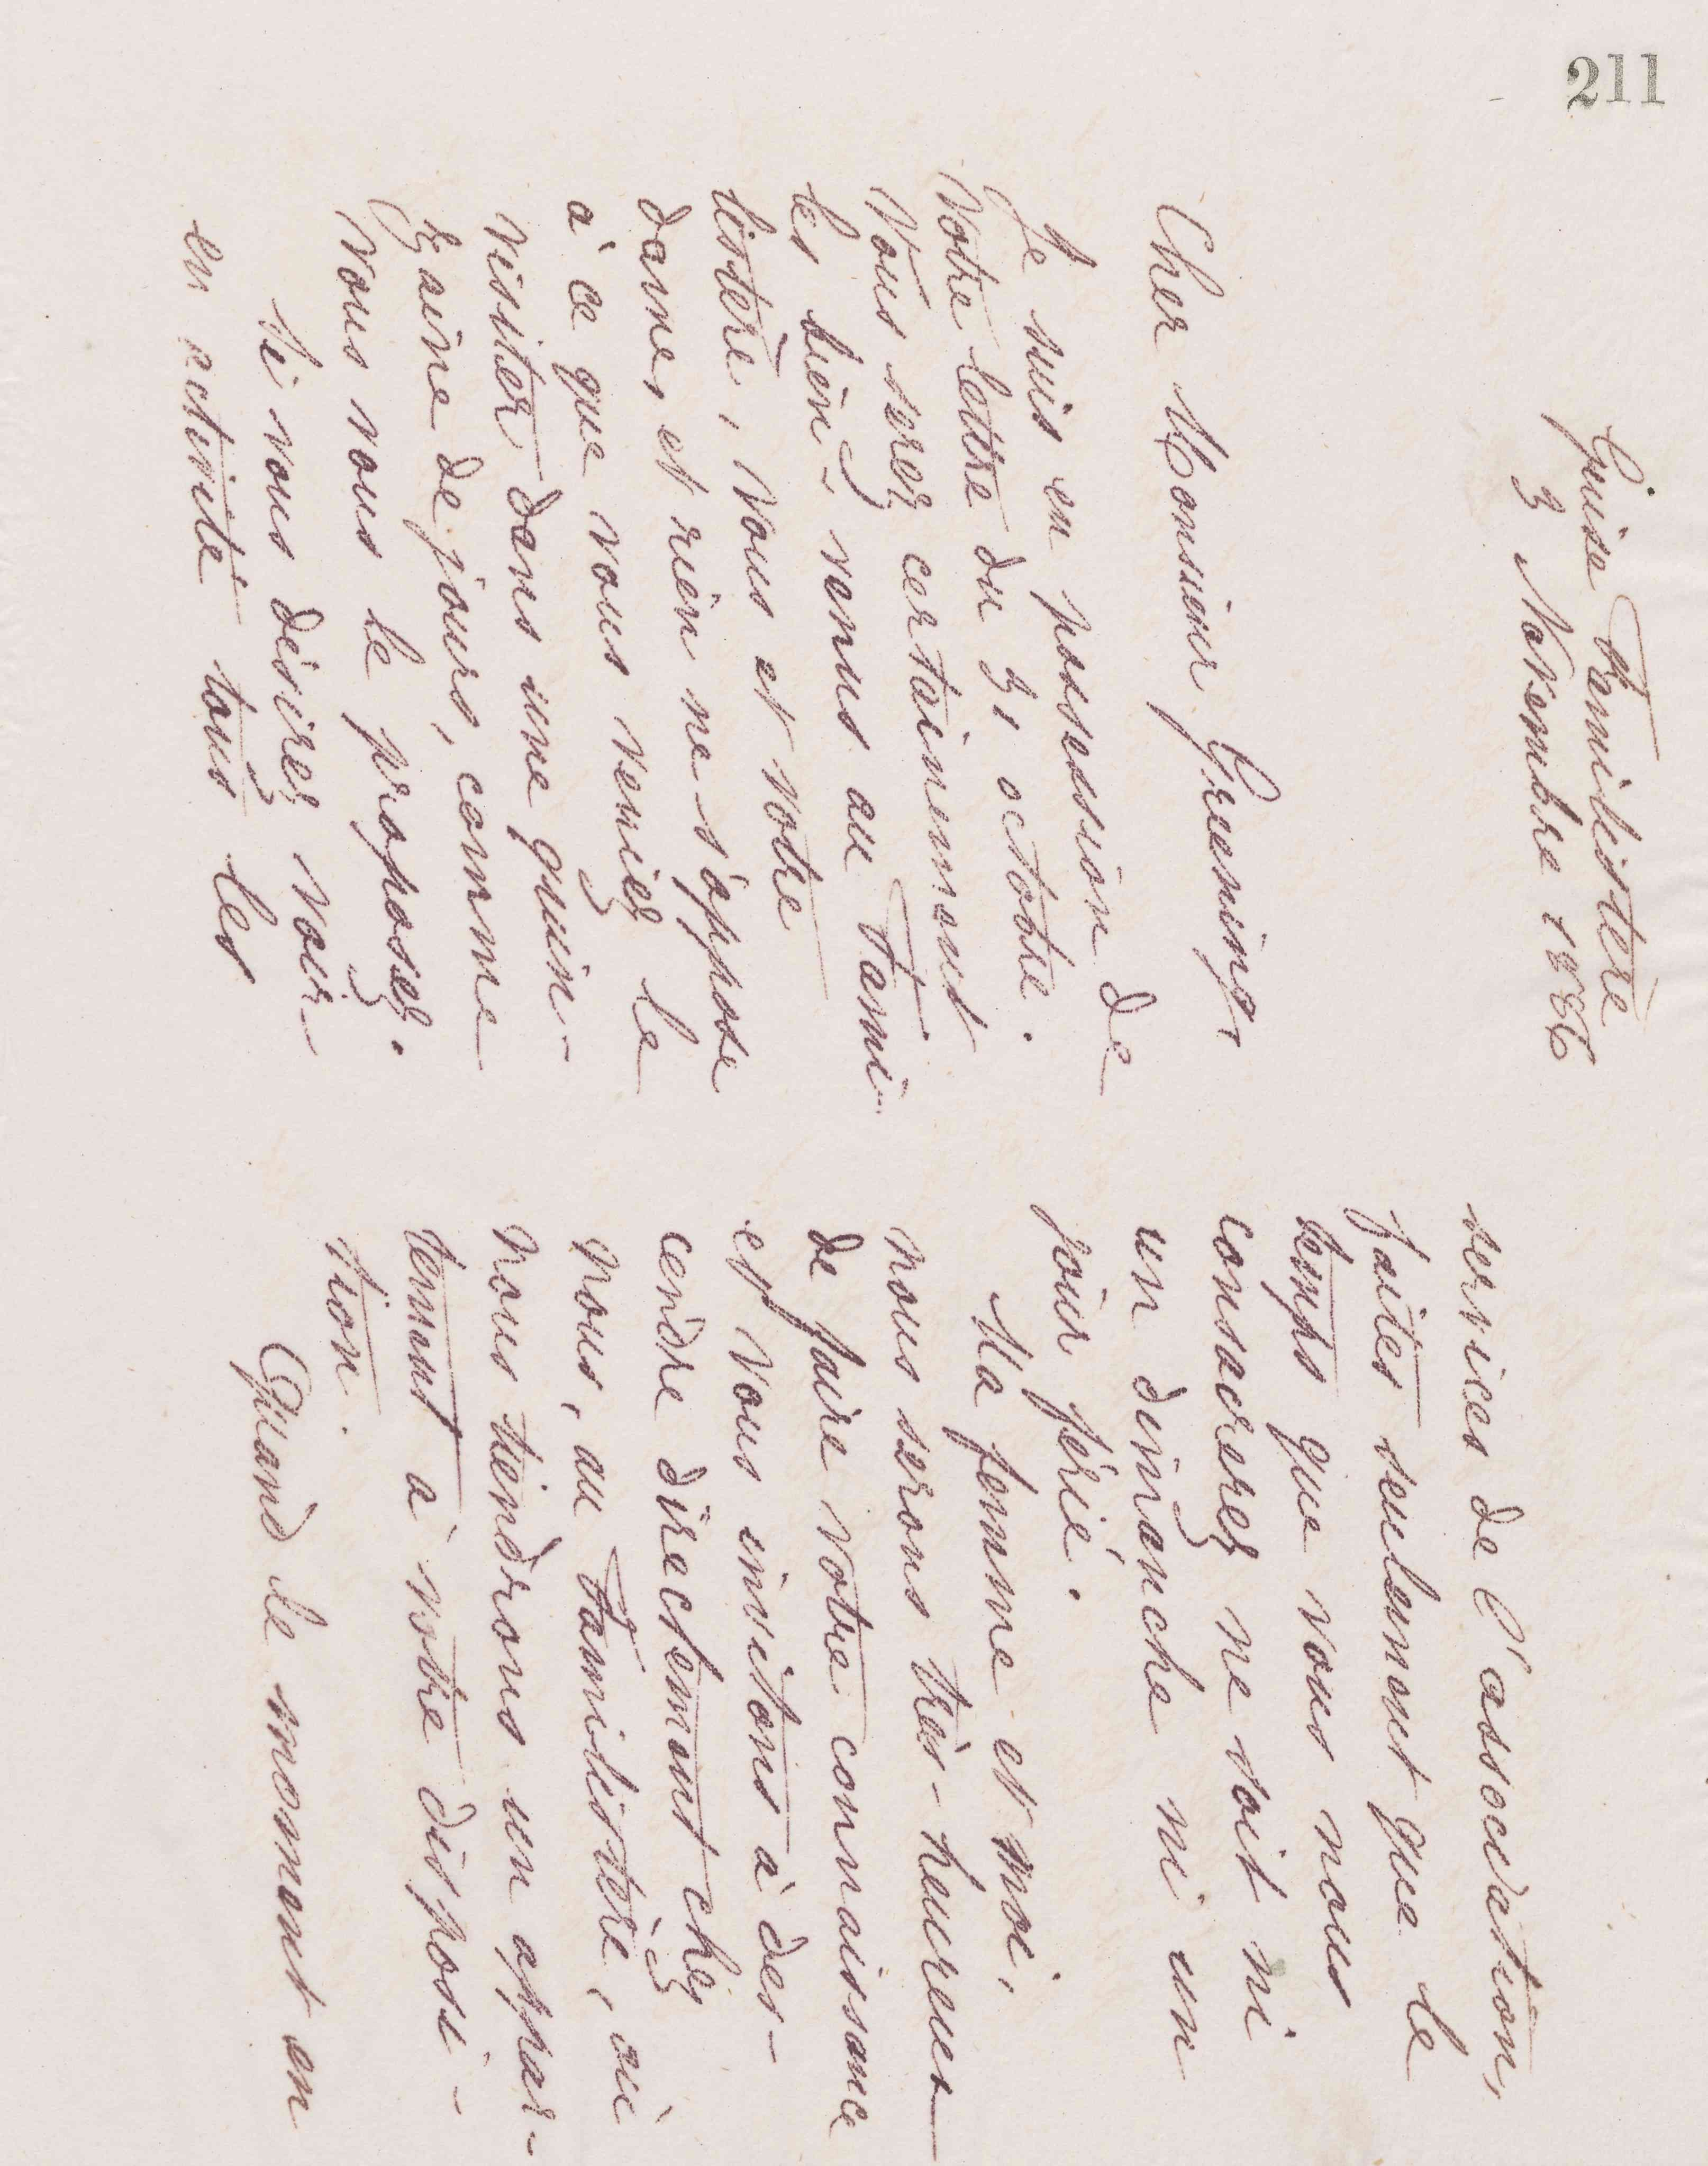 211
Guise Familistère
3 Novembre 1886
Cher Monsieur Greening,
Je suis en possession de
votre lettre du 31 octobre.
Vous serez certainement
les bien-venus au Fami-
listère, vous et votre
dame, et rien ne s'oppose
à ce que vous veniez le
visiter, dans une quin-
zaine de jours, comme
vous vous le proposez.
Si vous désirez voir
en activité tous les
services de l'association,
faites seulement que le
temps que vous nous
consacrerez ne soit ni
un dimanche ni un
jour férié.
Ma femme et moi,
nous serons très-heureux
de faire votre connaissance
et vous invitons à des-
cendre directement chez
nous, au Familistère, où
nous tiendrons un appar-
tement à votre disposi-
tion.
Quand le moment en